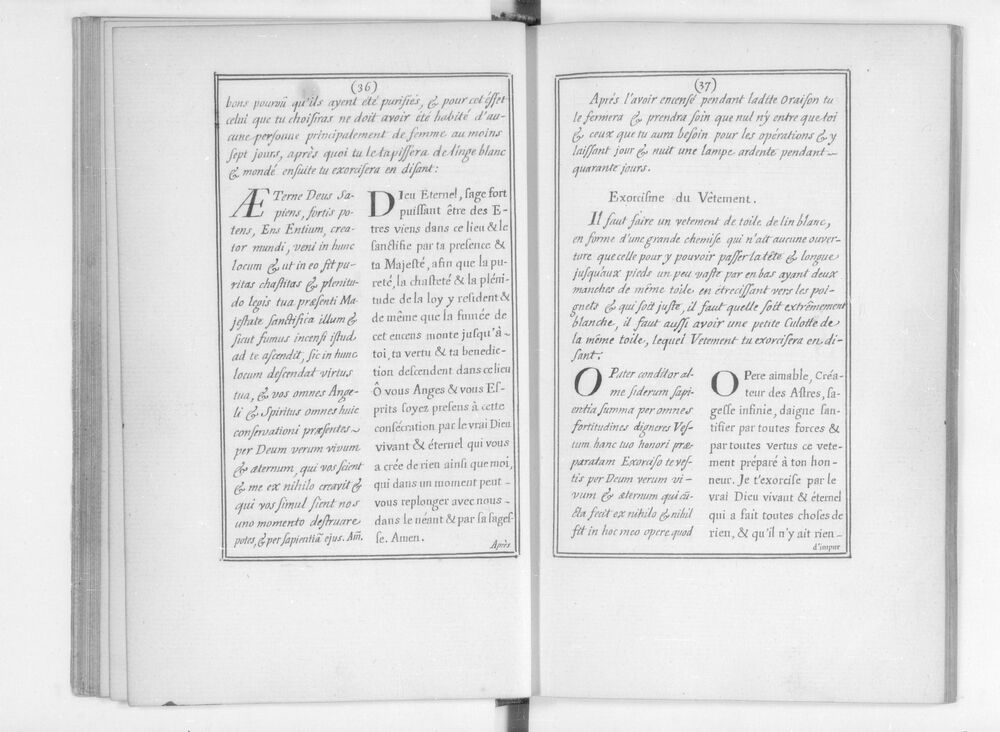 (36)
bons pourvû qu'ils ayent été purifiés, & pour cet éffet
celui que tu choisiras ne doit avoir été habité d'au-
cune personne principalement de femme au moins
sept jours, après quoi tu le tapissera de linge blanc
& mondé ensuite tu exorcisera en disant:
ÆTerne Deus Sa-
piens, fortis po-
tens, Ens Entium, crea-
tor mundi, veni in hunc
locum & ut in eo sit pu-
ritas chastitas & plenitu-
do legis tua præsenti Ma-
jestate sanctifica illum &
sicut fumus incensi istud
ad te ascendit, sic in hunc
locum descendat virtus
tua, & vos omnes Ange-
li & Spiritus omnes huic
conservationi præsentes
per Deum verum vivum
& æternum, qui vos scient
& me ex nihilo creavit &
qui vos simul sient nos
uno momento destruare
potes, & per sapientiã ejus. Am̃.
DIeu Eternel, sage fort
puissant être des E-
tres viens dans ce lieu & le
sanctifie par ta presence &
ta Majesté, afin que la pu-
reté, la chasteté & la pléni-
tude de la loy y resident &
de même que la fumée de
cet encens monte jusqu'à-
toi, ta vertu & ta benedic-
tion descendent dans ce lieu
Ô vous Anges & vous Es-
prits soyez presens à cette
consécration par le vrai Dieu
vivant & éternel qui vous
a crée de rien ainsi que moi,
qui dans un moment peut-
vous replonger avec nous-
dans le néant & par sa sages-
se. Amen.
Après
(37)
Après l'avoir encensé pendant ladite Oraison tu
le fermera & prendra soin que nul n'y entre que toi
& ceux que tu aura besoin pour les opérations & y
laissant jour & nuit une lampe ardente pendant-
quarante jours.
Exorcisme du Vêtement.
Il faut faire un vetement de toile de lin blanc,
en forme d'une grande chemise qui n'ait aucune ouver-
ture que celle pour y pouvoir passer la tête & longue
jusqu'aux pieds un peu vaste par en bas ayant deux
manches de même toile en étrecissant vers les poi-
gnets & qui soit juste, il faut quelle soit extrêmement
blanche, il faut aussi avoir une petite Culotte de
la même toile, lequel Vetement tu exorcisera en di-
sant:
O Pater conditor al-
me siderum sapi-
entia summa per omnes
fortitudines digneres Ves-
tum hanc tuo honori præ-
paratam Exorciso te ves-
tis per Deum verum vi-
vum & æternum qui cũ-
cta fecit ex nihilo & nihil
sit in hoc meo opere quod
O Pere aimable, Créa-
teur des Astres, sa-
gesse infinie, daigne san-
tifier par toutes forces &
par toutes vertus ce vete-
ment préparé à ton hon-
neur. Je t'exorcise par le
vrai Dieu vivant & éternel
qui a fait toutes choses de
rien, & qu'il n'y ait rien-
d'impur